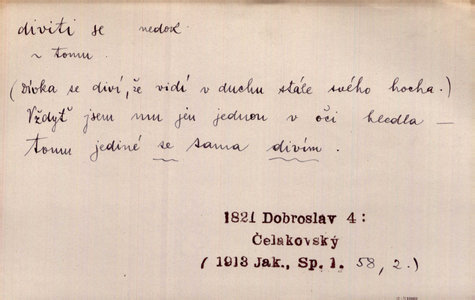 diviti se nedok.
~ tomu.
(Dívka se diví, že vidí v duchu stále svého hocha.)
Vždyť jsem mu jen jednou v oči hledla —
tomu jediné se sama divím.
1821 Dobroslav 4:
Čelakovský
(1913 Jak., Sp. 1. 58, 2.)